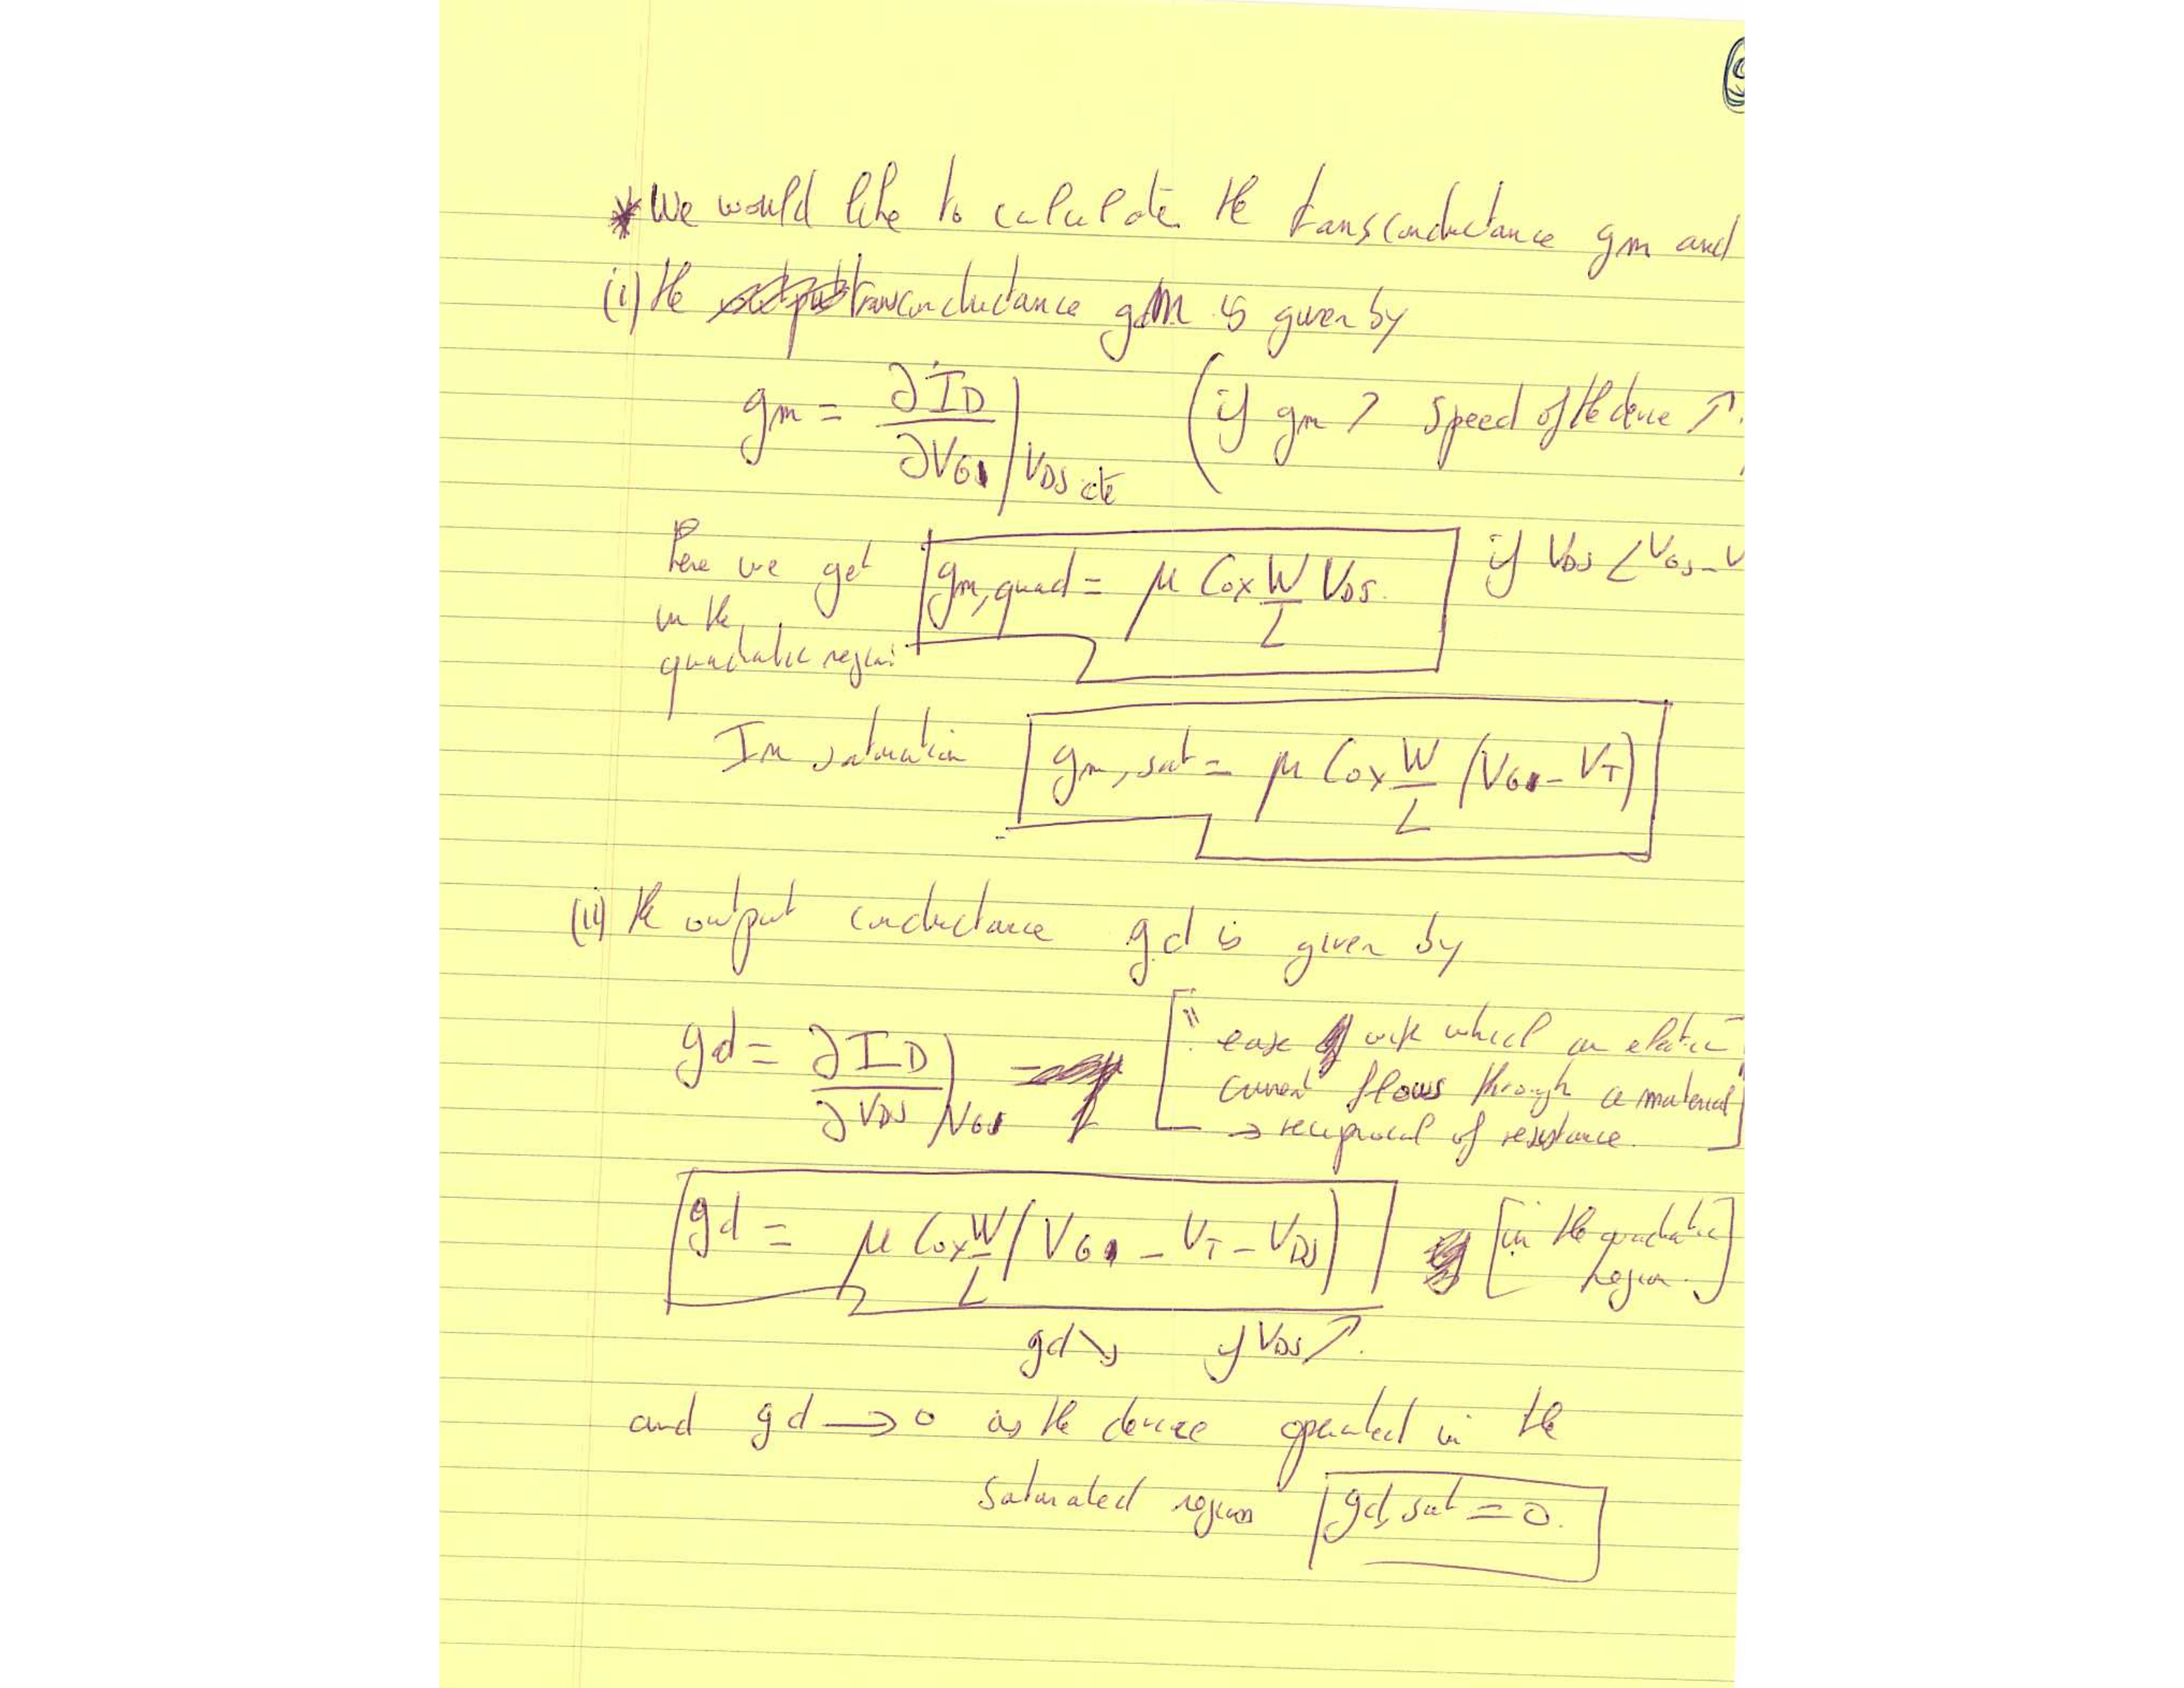 *We would like to calculate the transconductance gm and
(i) the transconductance gm is given by
gm = ∂ID / ∂VGS | VDS cte (if gm ↗ speed of the device ↗.
here we get gm,quad = μ Cox W/L VDS. if VDS < VGS - V
in the
quadratic region
In saturation gm,sat = μ Cox W/L (VGS - VT)
(ii) the output conductance gd is given by
gd = ∂ID / ∂VDS | VGS ["ease with which an electric
current flows through a material"
→ reciprocal of resistance.]
gd = μ Cox W/L (VGS - VT - VDS) [in the quadratic
region.]
gd ↘ if VDS ↗.
and gd → 0 as the device operated in the
saturated region gd,sat = 0.